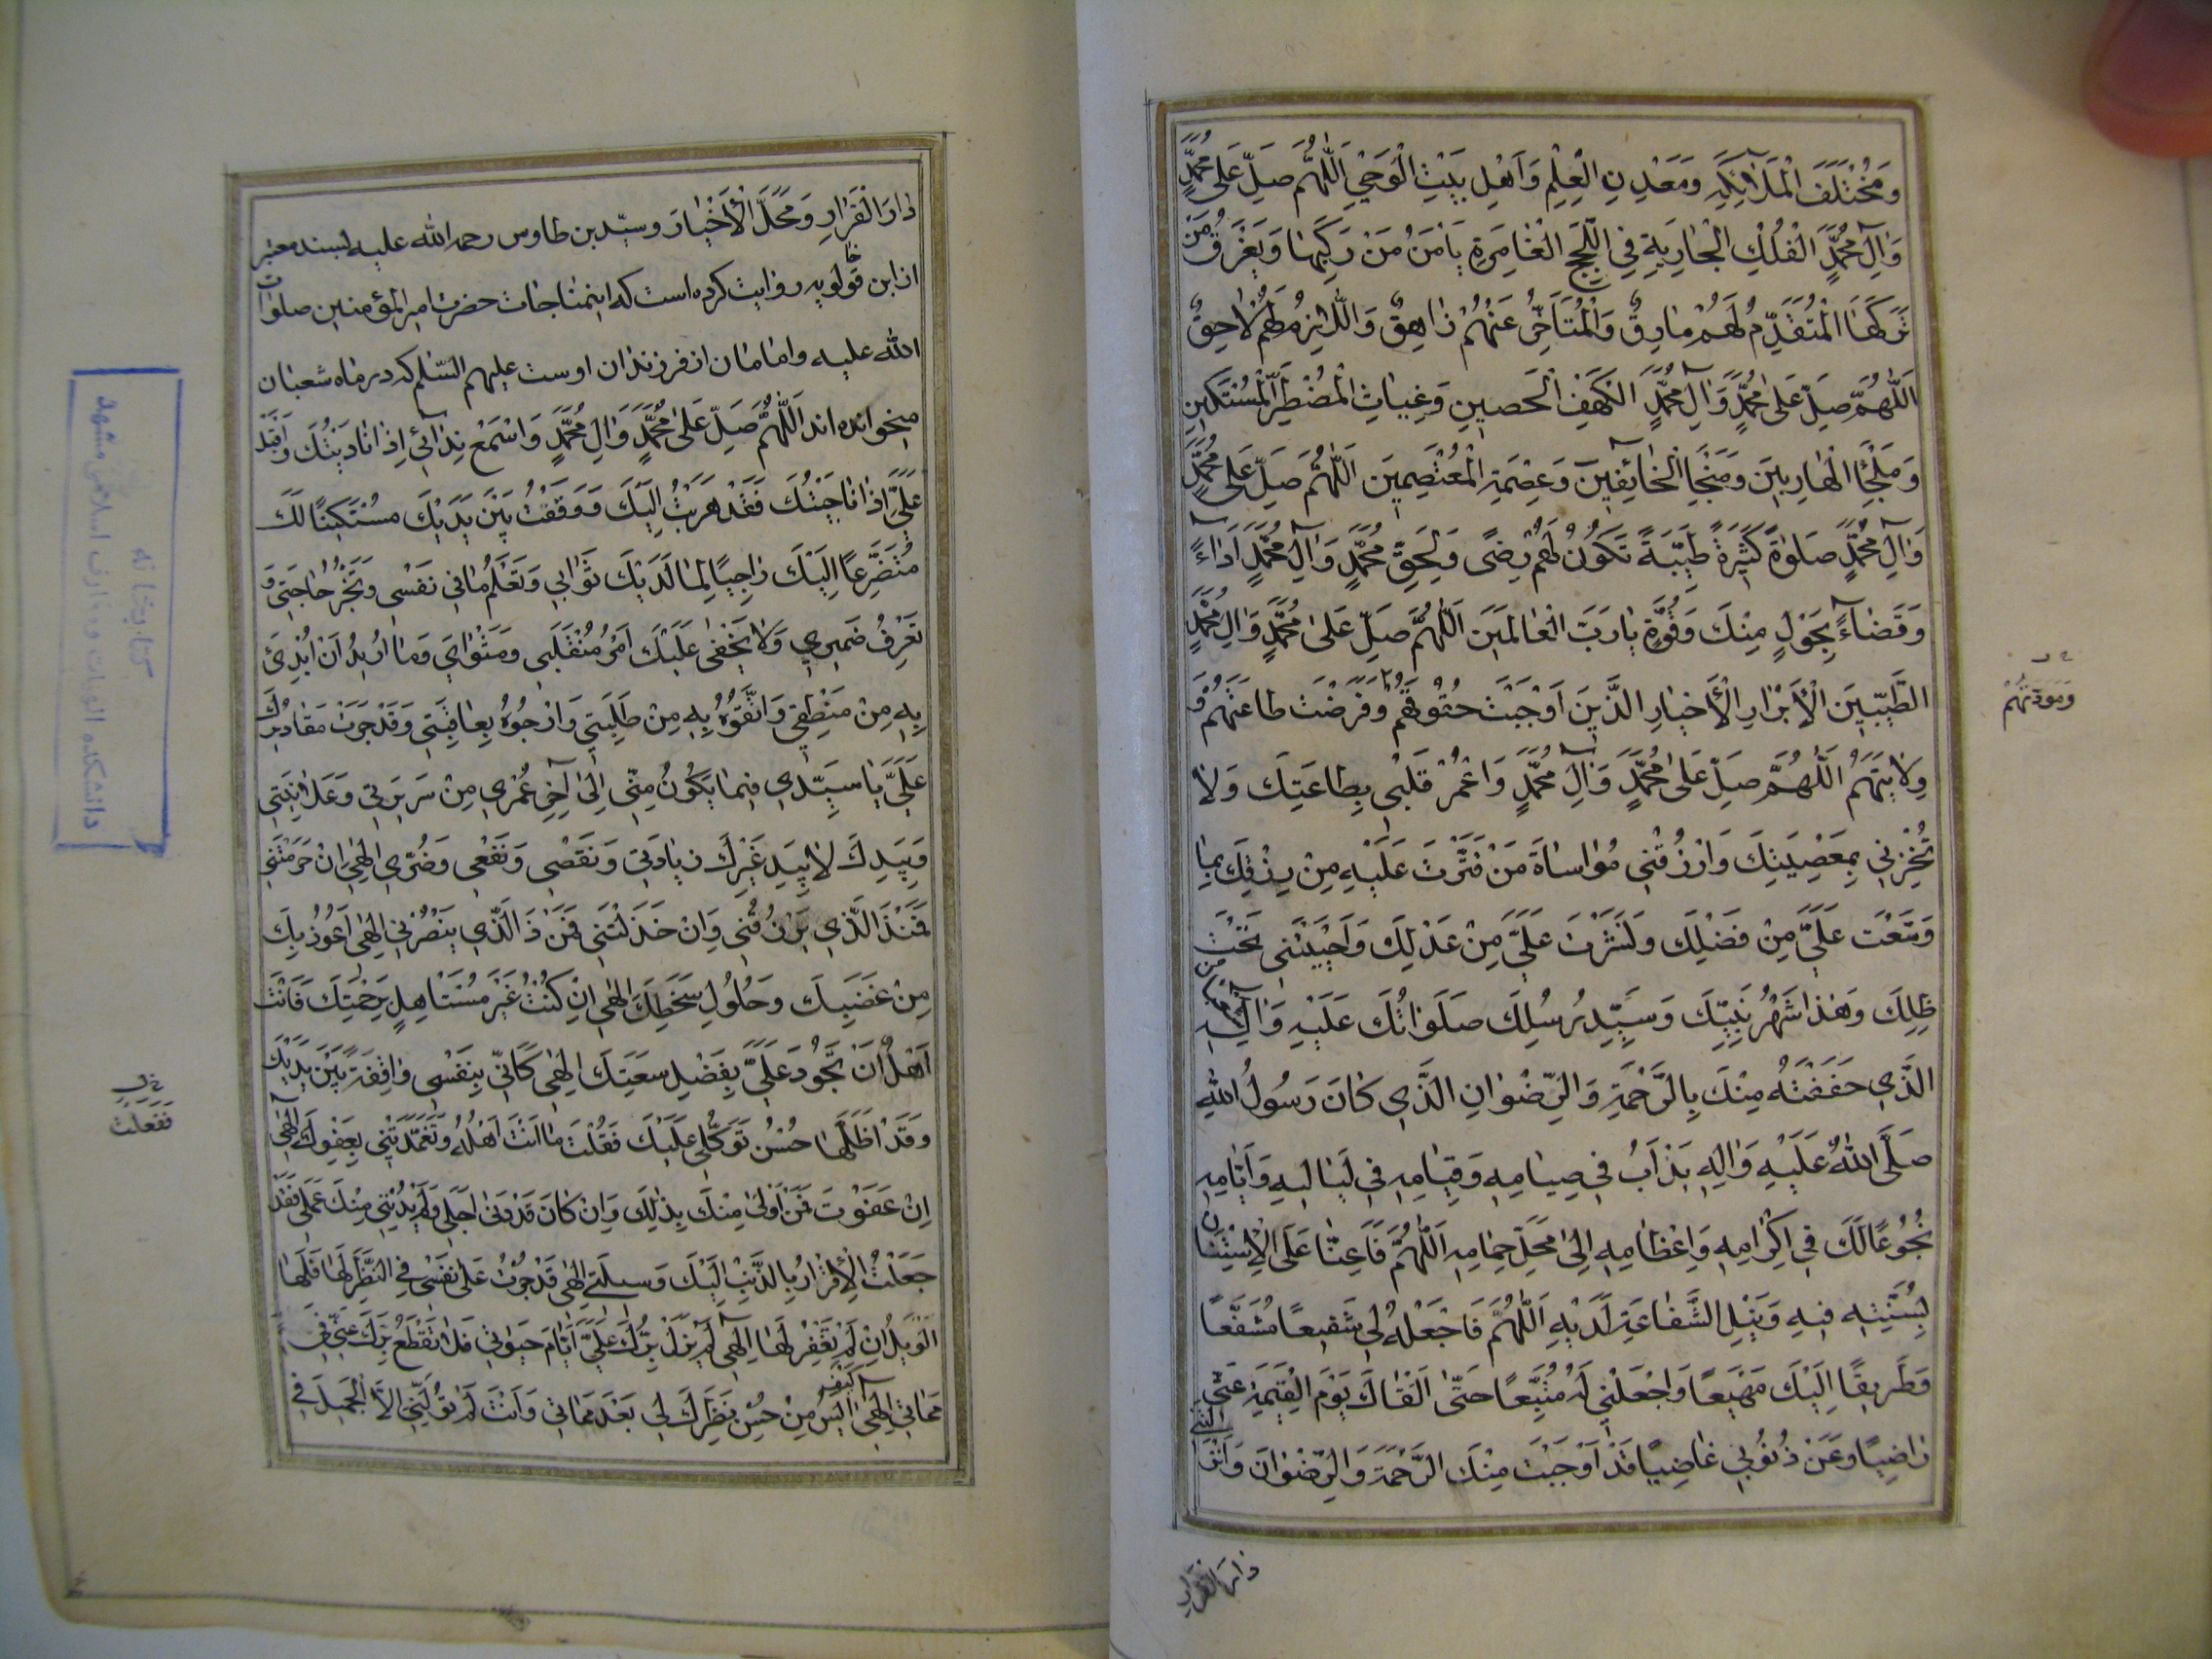 وَمُخْتَلَفِ الْمَلٰائِكَةِ وَمَعْدِنِ الْعِلْمِ وَاَهْلِ بَيْتِ الْوَحْيِ اَللّٰهُمَّ صَلِّ عَلٰى مُحَمَّدٍ
وَاٰلِ مُحَمَّدٍ الْفُلْكِ الْجٰارِيَةِ فِي اللُّجَجِ الْغٰامِرَةِ يَاْمَنُ مَنْ رَكِبَهٰا وَيَغْرَقُ مَنْ
تَرَكَهَا الْمُتَقَدِّمُ لَهُمْ مٰارِقٌ وَالْمُتَاَخِّرُ عَنْهُمْ زٰاهِقٌ وَاللّٰازِمُ لَهُمْ لٰاحِقٌ
اَللّٰهُمَّ صَلِّ عَلٰى مُحَمَّدٍ وَاٰلِ مُحَمَّدٍ الْكَهْفِ الْحَصينِ وَغِيٰاثِ الْمُضْطَرِّ الْمُسْتَكينِ
وَمَلْجَاِ الْهٰارِبينَ وَمَنْجَاِ الْخٰائِفينَ وَعِصْمَةِ الْمُعْتَصِمينَ اَللّٰهُمَّ صَلِّ عَلٰى مُحَمَّدٍ
وَاٰلِ مُحَمَّدٍ صَلٰوةً كَثيرَةً طَيِّبَةً تَكُونُ لَهُمْ رِضًى وَلِحَقِّ مُحَمَّدٍ وَاٰلِ مُحَمَّدٍ اَدٰاءً
وَقَضٰاءً بِحَوْلٍ مِنْكَ وَقُوَّةٍ يٰا رَبَّ الْعٰالَمينَ اَللّٰهُمَّ صَلِّ عَلٰى مُحَمَّدٍ وَاٰلِ مُحَمَّدٍ
الطَّيِّبينَ الْاَبْرٰارِ الْاَخْيٰارِ الَّذينَ اَوْجَبْتَ حُقُوقَهُمْ وَفَرَضْتَ طٰاعَتَهُمْ وَ
وَمَوَدَّتَهُمْ
وِلٰايَتَهُمْ اَللّٰهُمَّ صَلِّ عَلٰى مُحَمَّدٍ وَاٰلِ مُحَمَّدٍ وَاعْمُرْ قَلْبي بِطٰاعَتِكَ وَلٰا
تُخْزِني بِمَعْصِيَتِكَ وَارْزُقْني مُوٰاسٰاةَ مَنْ قَتَّرْتَ عَلَيْهِ مِنْ رِزْقِكَ بِمٰا
وَسَّعْتَ عَلَيَّ مِنْ فَضْلِكَ وَنَشَرْتَ عَلَيَّ مِنْ عَدْلِكَ وَاَحْيَيْتَني تَحْتَ
ظِلِّكَ وَهٰذٰا شَهْرُ نَبِيِّكَ وَسَيِّدِ رُسُلِكَ صَلَوٰاتُكَ عَلَيْهِ وَاٰلِهِ شعبان
الَّذي حَفَفْتَهُ مِنْكَ بِالرَّحْمَةِ وَالرِّضْوٰانِ الَّذي كٰانَ رَسُولُ اللّٰهِ
صَلَّى اللّٰهُ عَلَيْهِ وَاٰلِهِ يَدْاَبُ في صِيٰامِهِ وَقِيٰامِهِ في لَيٰاليهِ وَاَيّٰامِهِ
بُخُوعًا لَكَ في اِكْرٰامِهِ وَاِعْظٰامِهِ اِلٰى مَحَلِّ حِمٰامِهِ اَللّٰهُمَّ فَاَعِنّٰا عَلَى الْاِسْتِنٰانِ
بِسُنَّتِهِ فيهِ وَنَيْلِ الشَّفٰاعَةِ لَدَيْهِ اَللّٰهُمَّ فَاجْعَلْهُ لي شَفيعًا مُشَفَّعًا
وَطَريقًا اِلَيْكَ مَهْيَعًا وَاجْعَلْني لَهُ مُتَّبِعًا حَتّٰى اَلْقٰاكَ يَوْمَ الْقِيٰمَةِ عَنّي
رٰاضِيًا وَعَنْ ذُنُوبي غٰاضِيًا قَدْ اَوْجَبْتَ مِنْكَ الرَّحْمَةَ وَالرِّضْوٰانَ وَاَنْزَلْتَني
دار القرار
دٰارَ الْقَرٰارِ وَمَحَلَّ الْاَخْيٰارِ وسيد بن طاوس رحمه الله عليه بسند معتبر
از ابن خالويه روايت كرده است كه اينمناجات حضرت امير المؤمنين صلوات
الله عليه وامامان از فرزندان اوست عليهم السّلم كه در ماه شعبان
ميخوانده اند اَللّٰهُمَّ صَلِّ عَلٰى مُحَمَّدٍ وَاٰلِ مُحَمَّدٍ وَاسْمَعْ نِدٰائي اِذٰا نٰادَيْتُكَ وَاَقْبِلْ
عَلَيَّ اِذٰا نٰاجَيْتُكَ فَقَدْ هَرَبْتُ اِلَيْكَ وَوَقَفْتُ بَيْنَ يَدَيْكَ مُسْتَكينًا لَكَ
مُتَضَرِّعًا اِلَيْكَ رٰاجِيًا لِمٰا لَدَيْكَ ثَوٰابي وَتَعْلَمُ مٰا في نَفْسي وَتَخْبُرُ حٰاجَتي وَ
تَعْرِفُ ضَميري وَلٰا يَخْفٰى عَلَيْكَ اَمْرُ مُنْقَلَبي وَمَثْوٰايَ وَمٰا اُريدُ اَنْ اُبْدِئَ
بِهِ مِنْ مَنْطِقي وَاَتَفَوَّهُ بِهِ مِنْ طَلِبَتي وَاَرْجُوهُ بِعٰافِيَتي وَقَدْ جَرَتْ مَقٰاديرُكَ
عَلَيَّ يٰا سَيِّدي فيمٰا يَكُونُ مِنّي اِلٰى اٰخِرِ عُمْري مِنْ سَريرَتي وَعَلٰانِيَتي
وَبِيَدِكَ لٰا بِيَدِ غَيْرِكَ زِيٰادَتي وَنَقْصي وَنَفْعي وَضُرّي اِلٰهي اِنْ حَرَمْتَني
فَمَنْ ذَا الَّذي يَرْزُقُني وَاِنْ خَذَلْتَني فَمَنْ ذَا الَّذي يَنْصُرُني اِلٰهي اَعُوذُ بِكَ
مِنْ غَضَبِكَ وَحُلُولِ سَخَطِكَ اِلٰهي اِنْ كُنْتُ غَيْرَ مُسْتَاْهِلٍ لِرَحْمَتِكَ فَاَنْتَ
اَهْلٌ اَنْ تَجُودَ عَلَيَّ بِفَضْلِ سَعَتِكَ اِلٰهي كَاَنّي بِنَفْسي وٰاقِفَةٌ بَيْنَ يَدَيْكَ
وَقَدْ اَظَلَّهٰا حُسْنُ تَوَكُّلي عَلَيْكَ فَقُلْتَ مٰا اَنْتَ اَهْلُهُ وَتَغَمَّدْتَني بِعَفْوِكَ اِلٰهي
فَفَعَلْتَ
اِنْ عَفَوْتَ فَمَنْ اَوْلٰى مِنْكَ بِذٰلِكَ وَاِنْ كٰانَ قَدْ دَنٰى اَجَلي وَلَمْ يُدْنِني مِنْكَ عَمَلي فَقَدْ
جَعَلْتُ الْاِقْرٰارَ بِالذَّنْبِ اِلَيْكَ وَسيلَتي اِلٰهي قَدْ جُرْتُ عَلٰى نَفْسي فِي النَّظَرِ لَهٰا فَلَهَا
الْوَيْلُ اِنْ لَمْ تَغْفِرْ لَهٰا اِلٰهي لَمْ يَزَلْ بِرُّكَ عَلَيَّ اَيّٰامَ حَيٰوتي فَلٰا تَقْطَعْ بِرَّكَ عَنّي في
مَمٰاتي اِلٰهي كَيْفَ اٰيَسُ مِنْ حُسْنِ نَظَرِكَ لي بَعْدَ مَمٰاتي وَاَنْتَ لَمْ تُوَلِّني اِلَّا الْجَميلَ في
كتابخانه
دانشكده الهيات ومعارف اسلامى مشهد